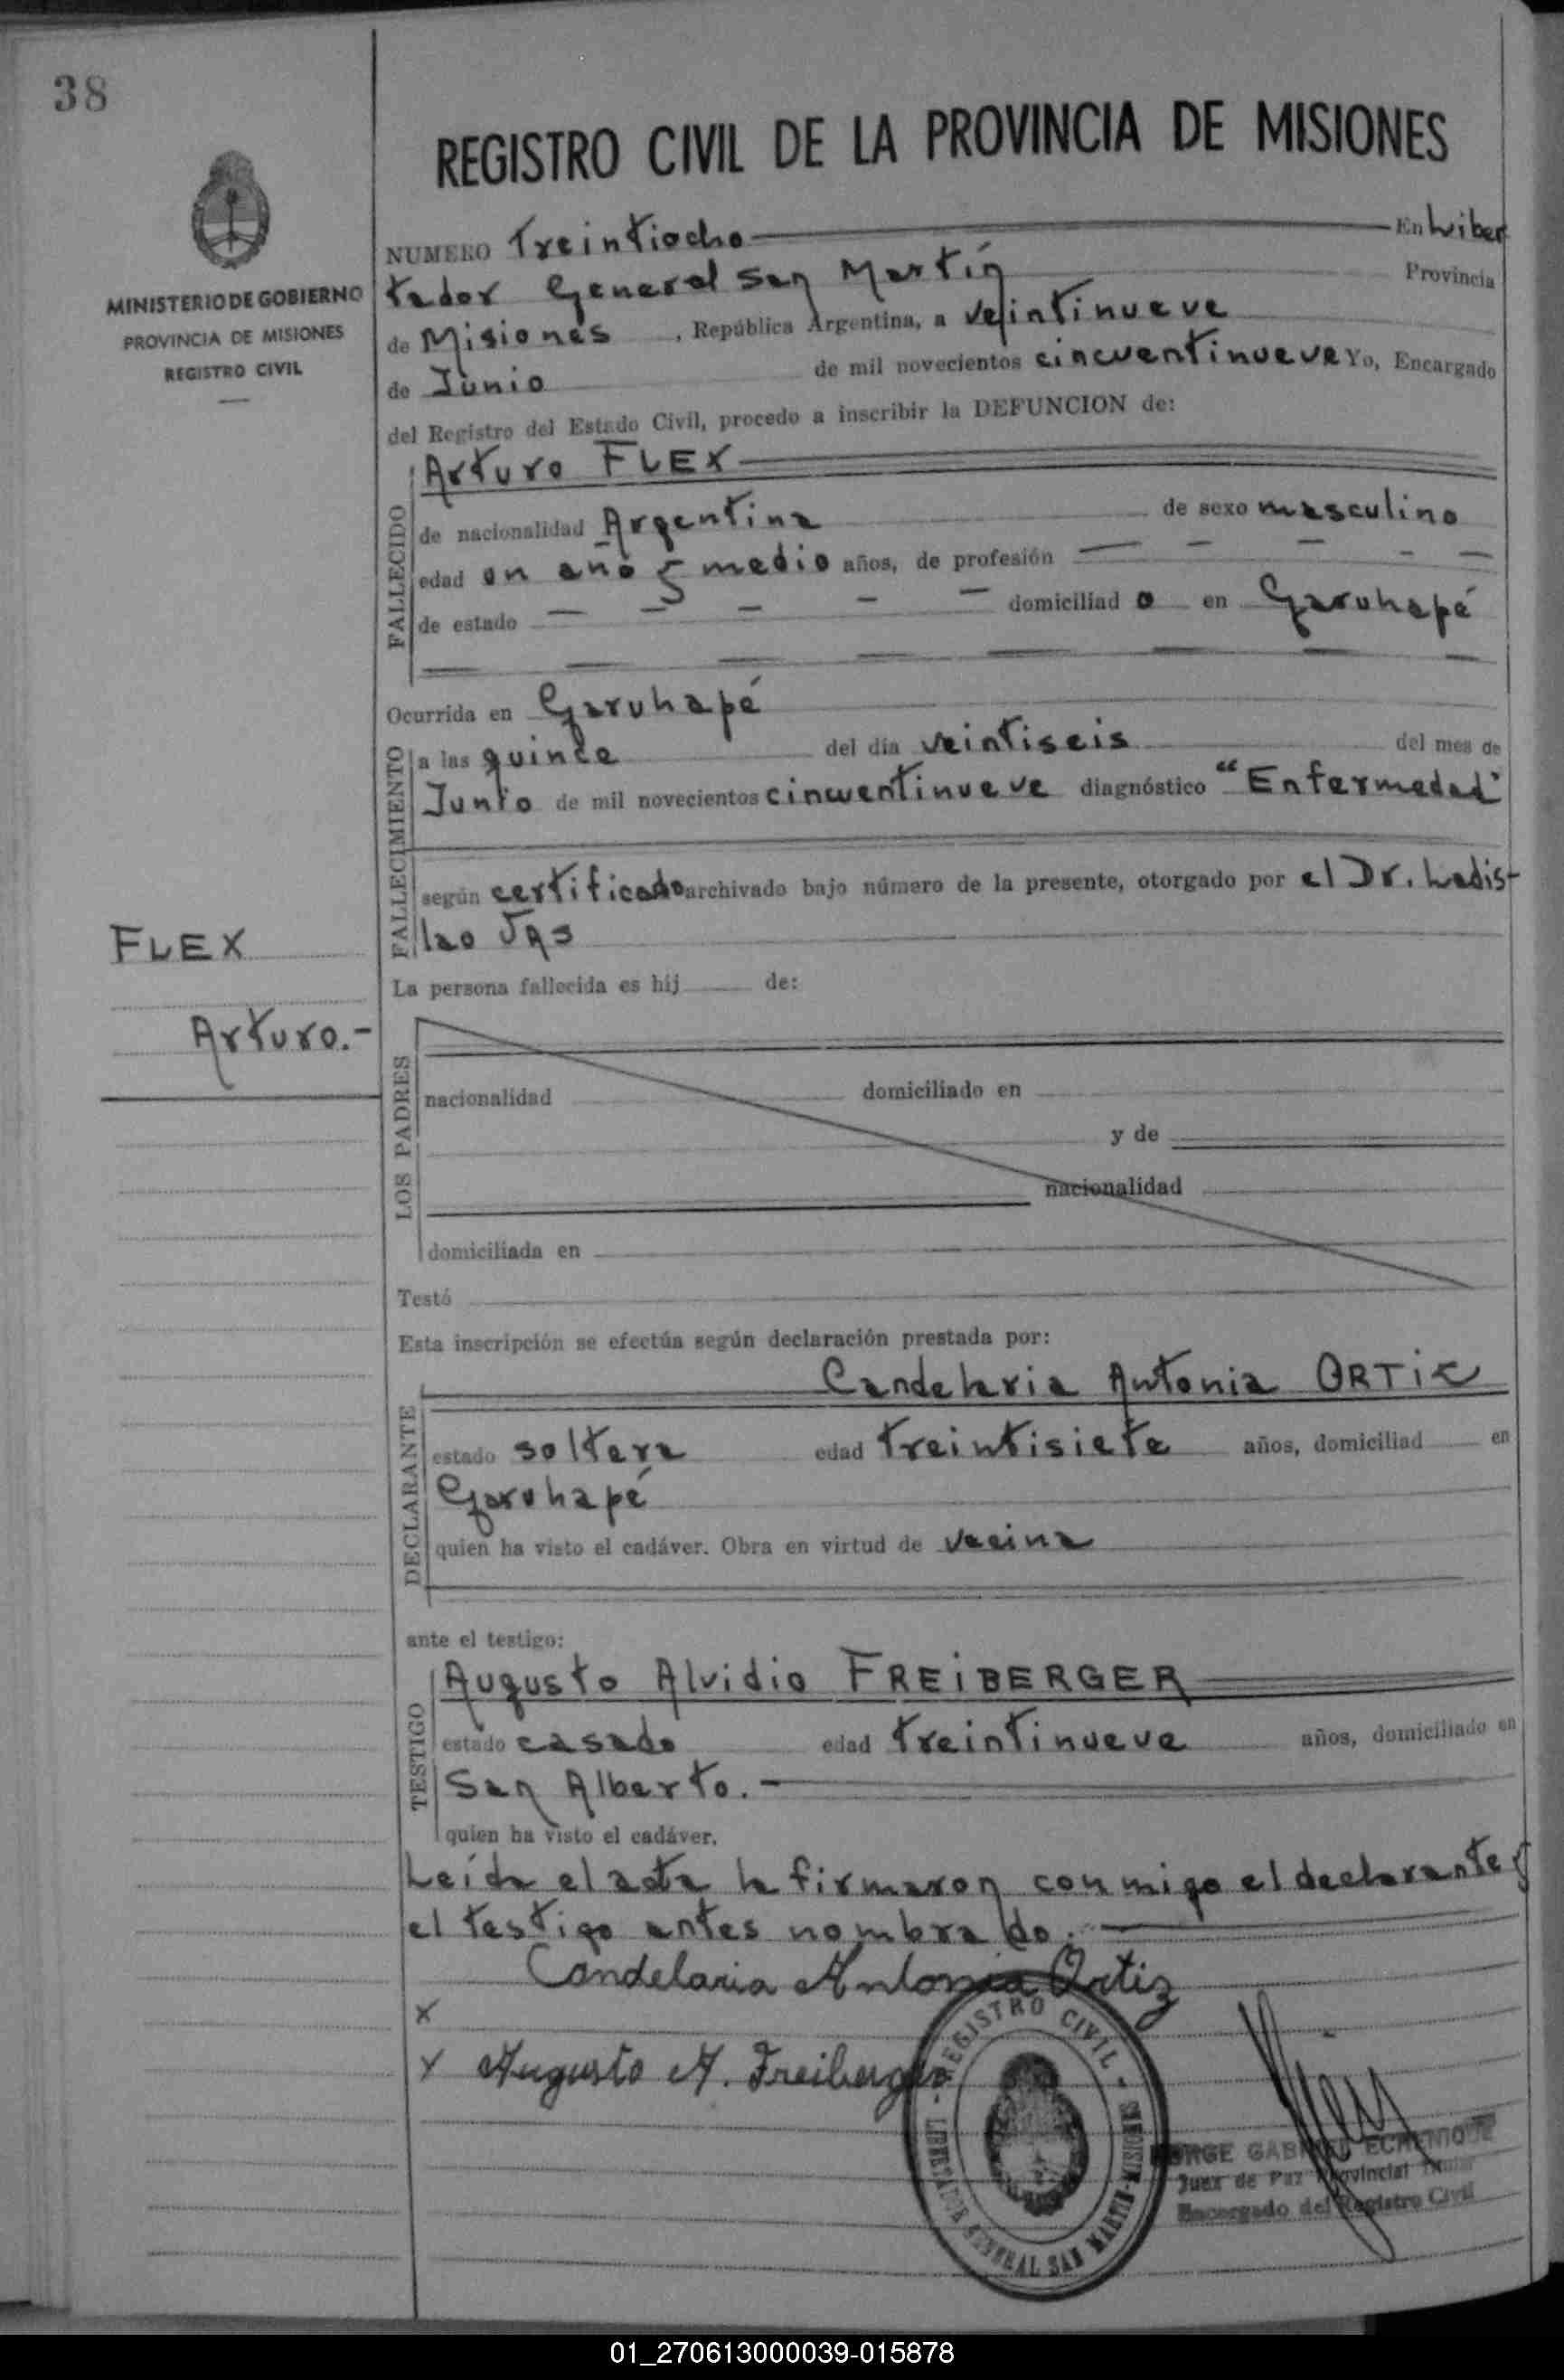 38
REGISTRO CIVIL DE LA PROVINCIA DE MISIONES
MINISTERIO DE GOBIERNO
PROVINCIA DE MISIONES
REGISTRO CIVIL
NUMERO Treintiocho En Liber
tador General San Martín Provincia
de Misiones, República Argentina, a veintinueve
de Junio de mil novecientos cincuentinueve Yo, Encargado
del Registro del Estado Civil, procedo a inscribir la DEFUNCION de:
FALLECIDO
Arturo FLEX
de nacionalidad Argentina de sexo masculino
edad un año y medio años, de profesión — — — — —
de estado — — — — — domiciliad o en Garuhapé
Ocurrida en Garuhapé
FALLECIMIENTO
a las quince del día veintiseis del mes de
Junio de mil novecientos cincuentinueve diagnóstico "Enfermedad"
según certificado archivado bajo número de la presente, otorgado por el Dr. Ladis-
lao
FLEX
Arturo.-
La persona fallecida es hij de:
LOS PADRES
nacionalidad domiciliado en
y de
nacionalidad
domiciliada en
Testó
Esta inscripción se efectúa según declaración prestada por:
DECLARANTE
Candelaria Antonia ORTIZ
estado soltera edad treintisiete años, domiciliad en
Garuhapé
quien ha visto el cadáver. Obra en virtud de vecina
ante el testigo:
TESTIGO
Augusto Alvidio FREIBERGER
estado casado edad treintinueve años, domiciliado en
San Alberto.-
quien ha visto el cadáver.
Leída el acta la firmaron conmigo el declarante y
el testigo antes nombrado.
Candelaria Antonia Ortiz
x
x Augusto A. Freiberger
REGISTRO CIVIL - MISIONES - LIBERTADOR GENERAL SAN MARTIN
JORGE GABRIEL ECHENIQUE
Juez de Paz Provincial Titular
Encargado del Registro Civil
01_270613000039-015878